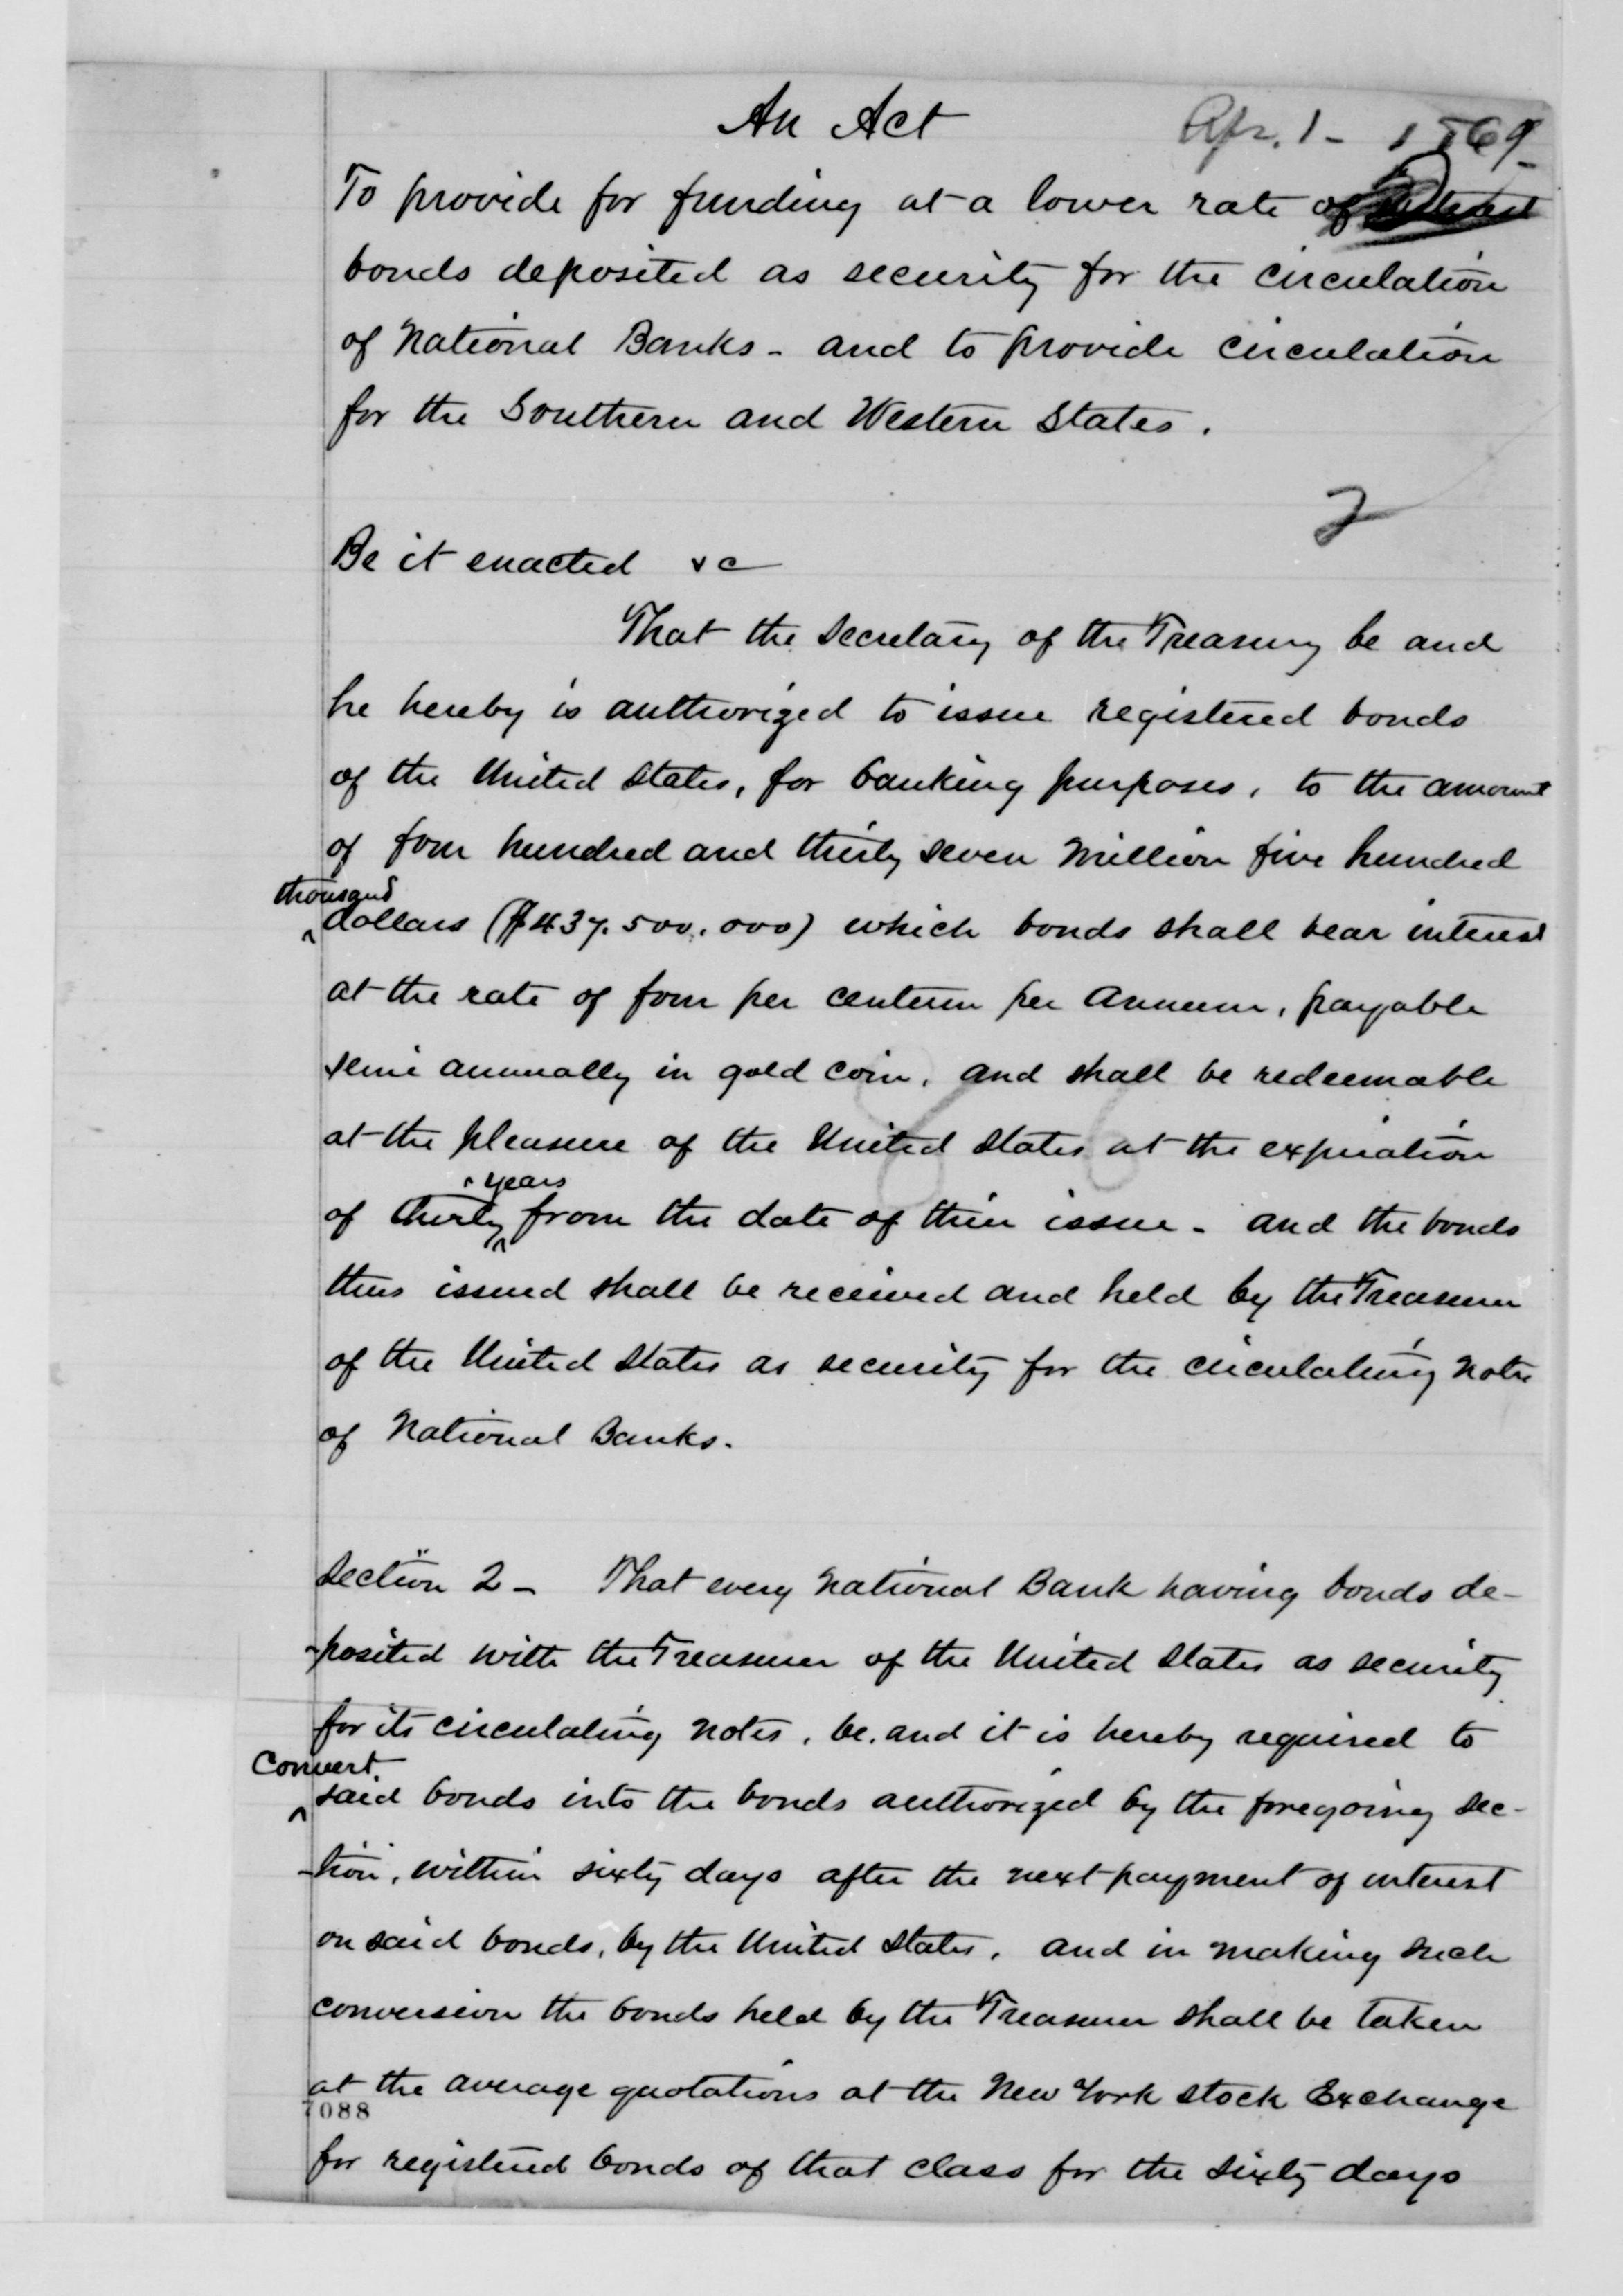 An Act
Apr. 1 - 1869
To provide for funding at a lower rate of interest
bonds deposited as security for the circulation
of National Banks - and to provide circulation
for the Southern and Western States.
2
Be it enacted &c
That the Secretary of the Treasury be and
he hereby is authorized to issue registered bonds
of the United States, for banking purposes, to the amount
of four hundred and thirty seven million five hundred
thousand
dollars ($437.500.000) which bonds shall bear interest
at the rate of four per centum per annum, payable
semi annually in gold coin, and shall be redeemable
at the pleasure of the United States at the expiration
years
of thirty from the date of their issue - and the bonds
thus issued shall be received and held by the Treasurer
of the United States as security for the circulating notes
of National Banks.
Section 2 - That every National Bank having bonds de-
-posited with the Treasurer of the United States as security
for its circulating notes, be, and it is hereby required to
Convert
said bonds into the bonds authorized by the foregoing sec-
-tion, within sixty days after the next payment of interest
on said bonds, by the United States, and in making such
conversion the bonds held by the Treasurer shall be taken
at the average quotations at the New York Stock Exchange
7088
for registered bonds of that class for the sixty days